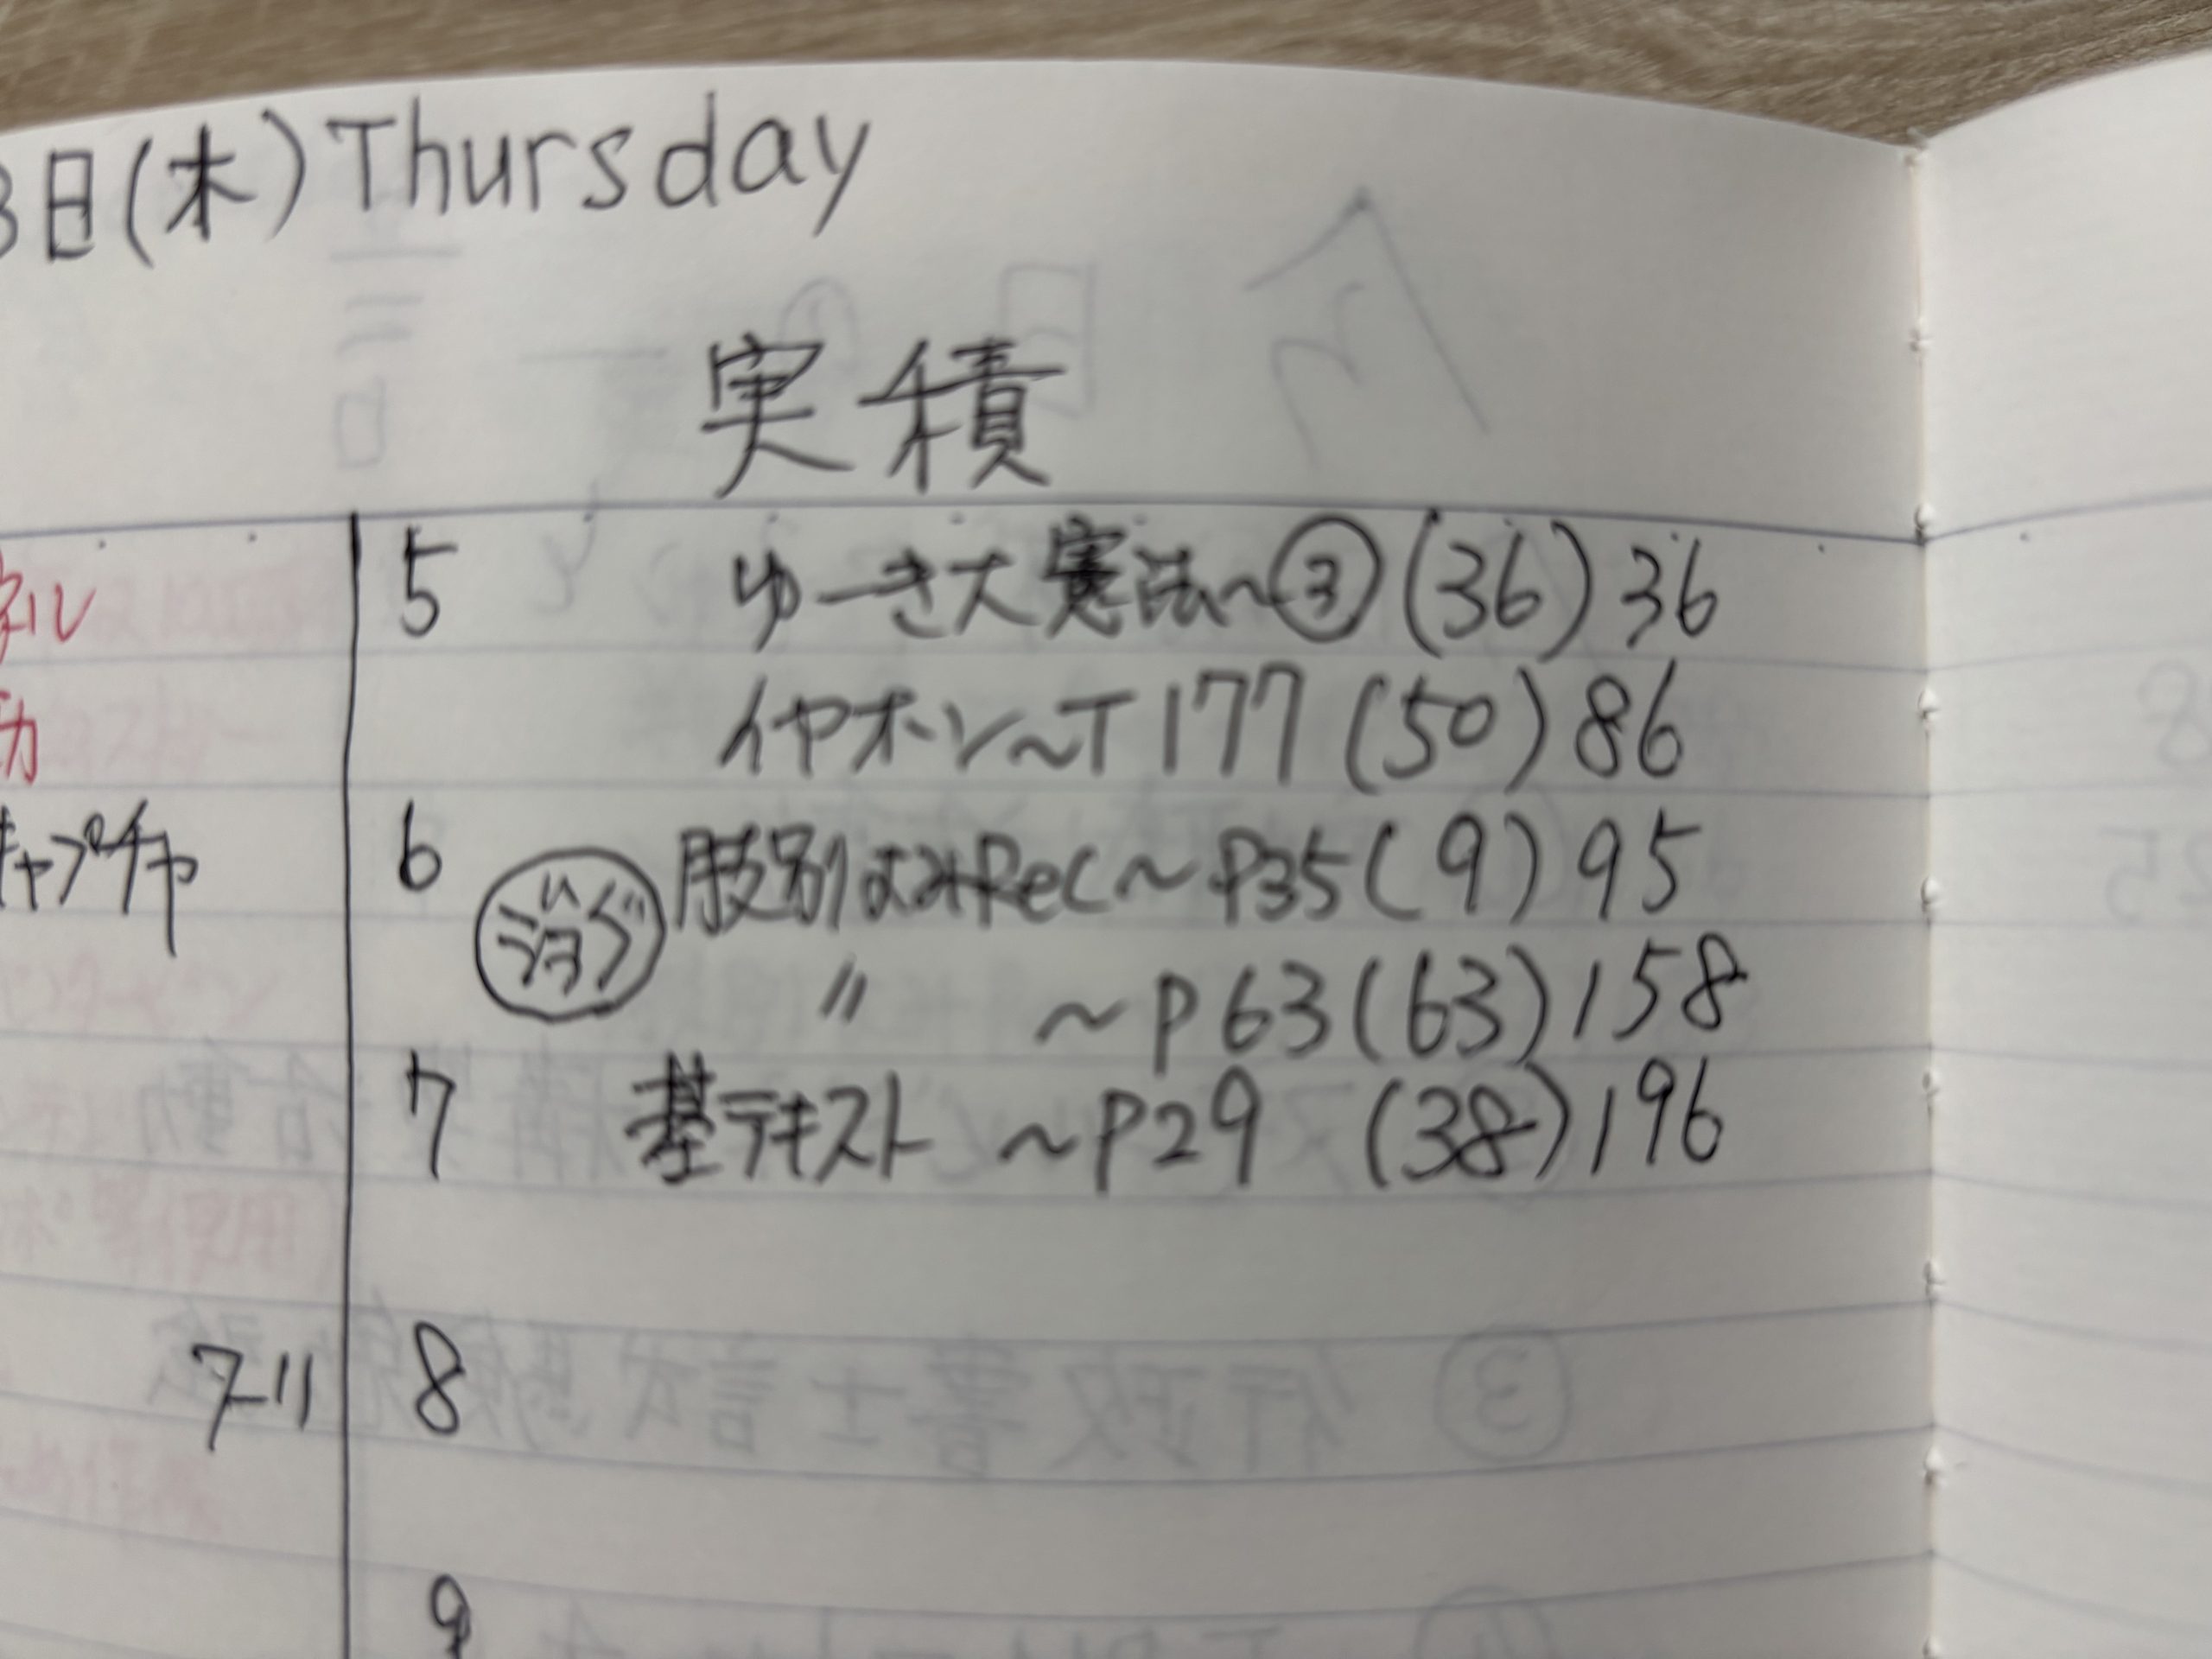 3日(木)Thursday
実積
5 ゆーき大憲法~③(36)36
イヤホン~T177(50)86
キャプチャ
6 肢別よみRec~P35(9)95
ジョグ
〃 ~P63(63)158
7 基テキスト ~P29 (38)196
8
9